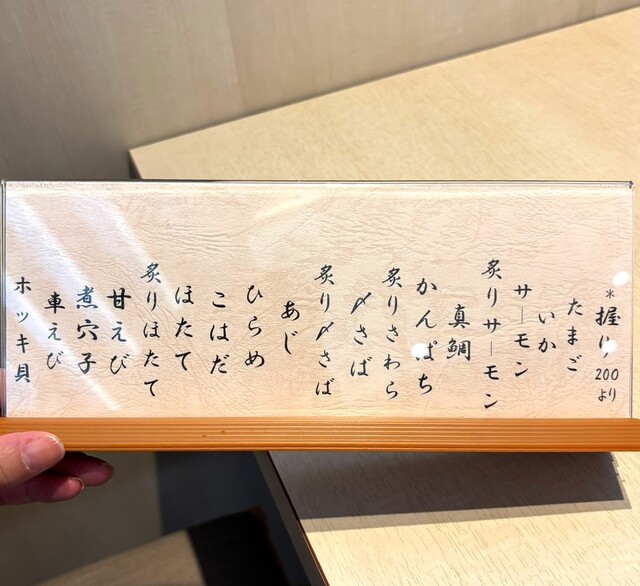 *握り200より
たまご
いか
サーモン
炙りサーモン
真鯛
かんぱち
炙りさわら
〆さば
炙り〆さば
あじ
ひらめ
こはだ
ほたて
炙りほたて
甘えび
煮穴子
車えび
ホッキ貝